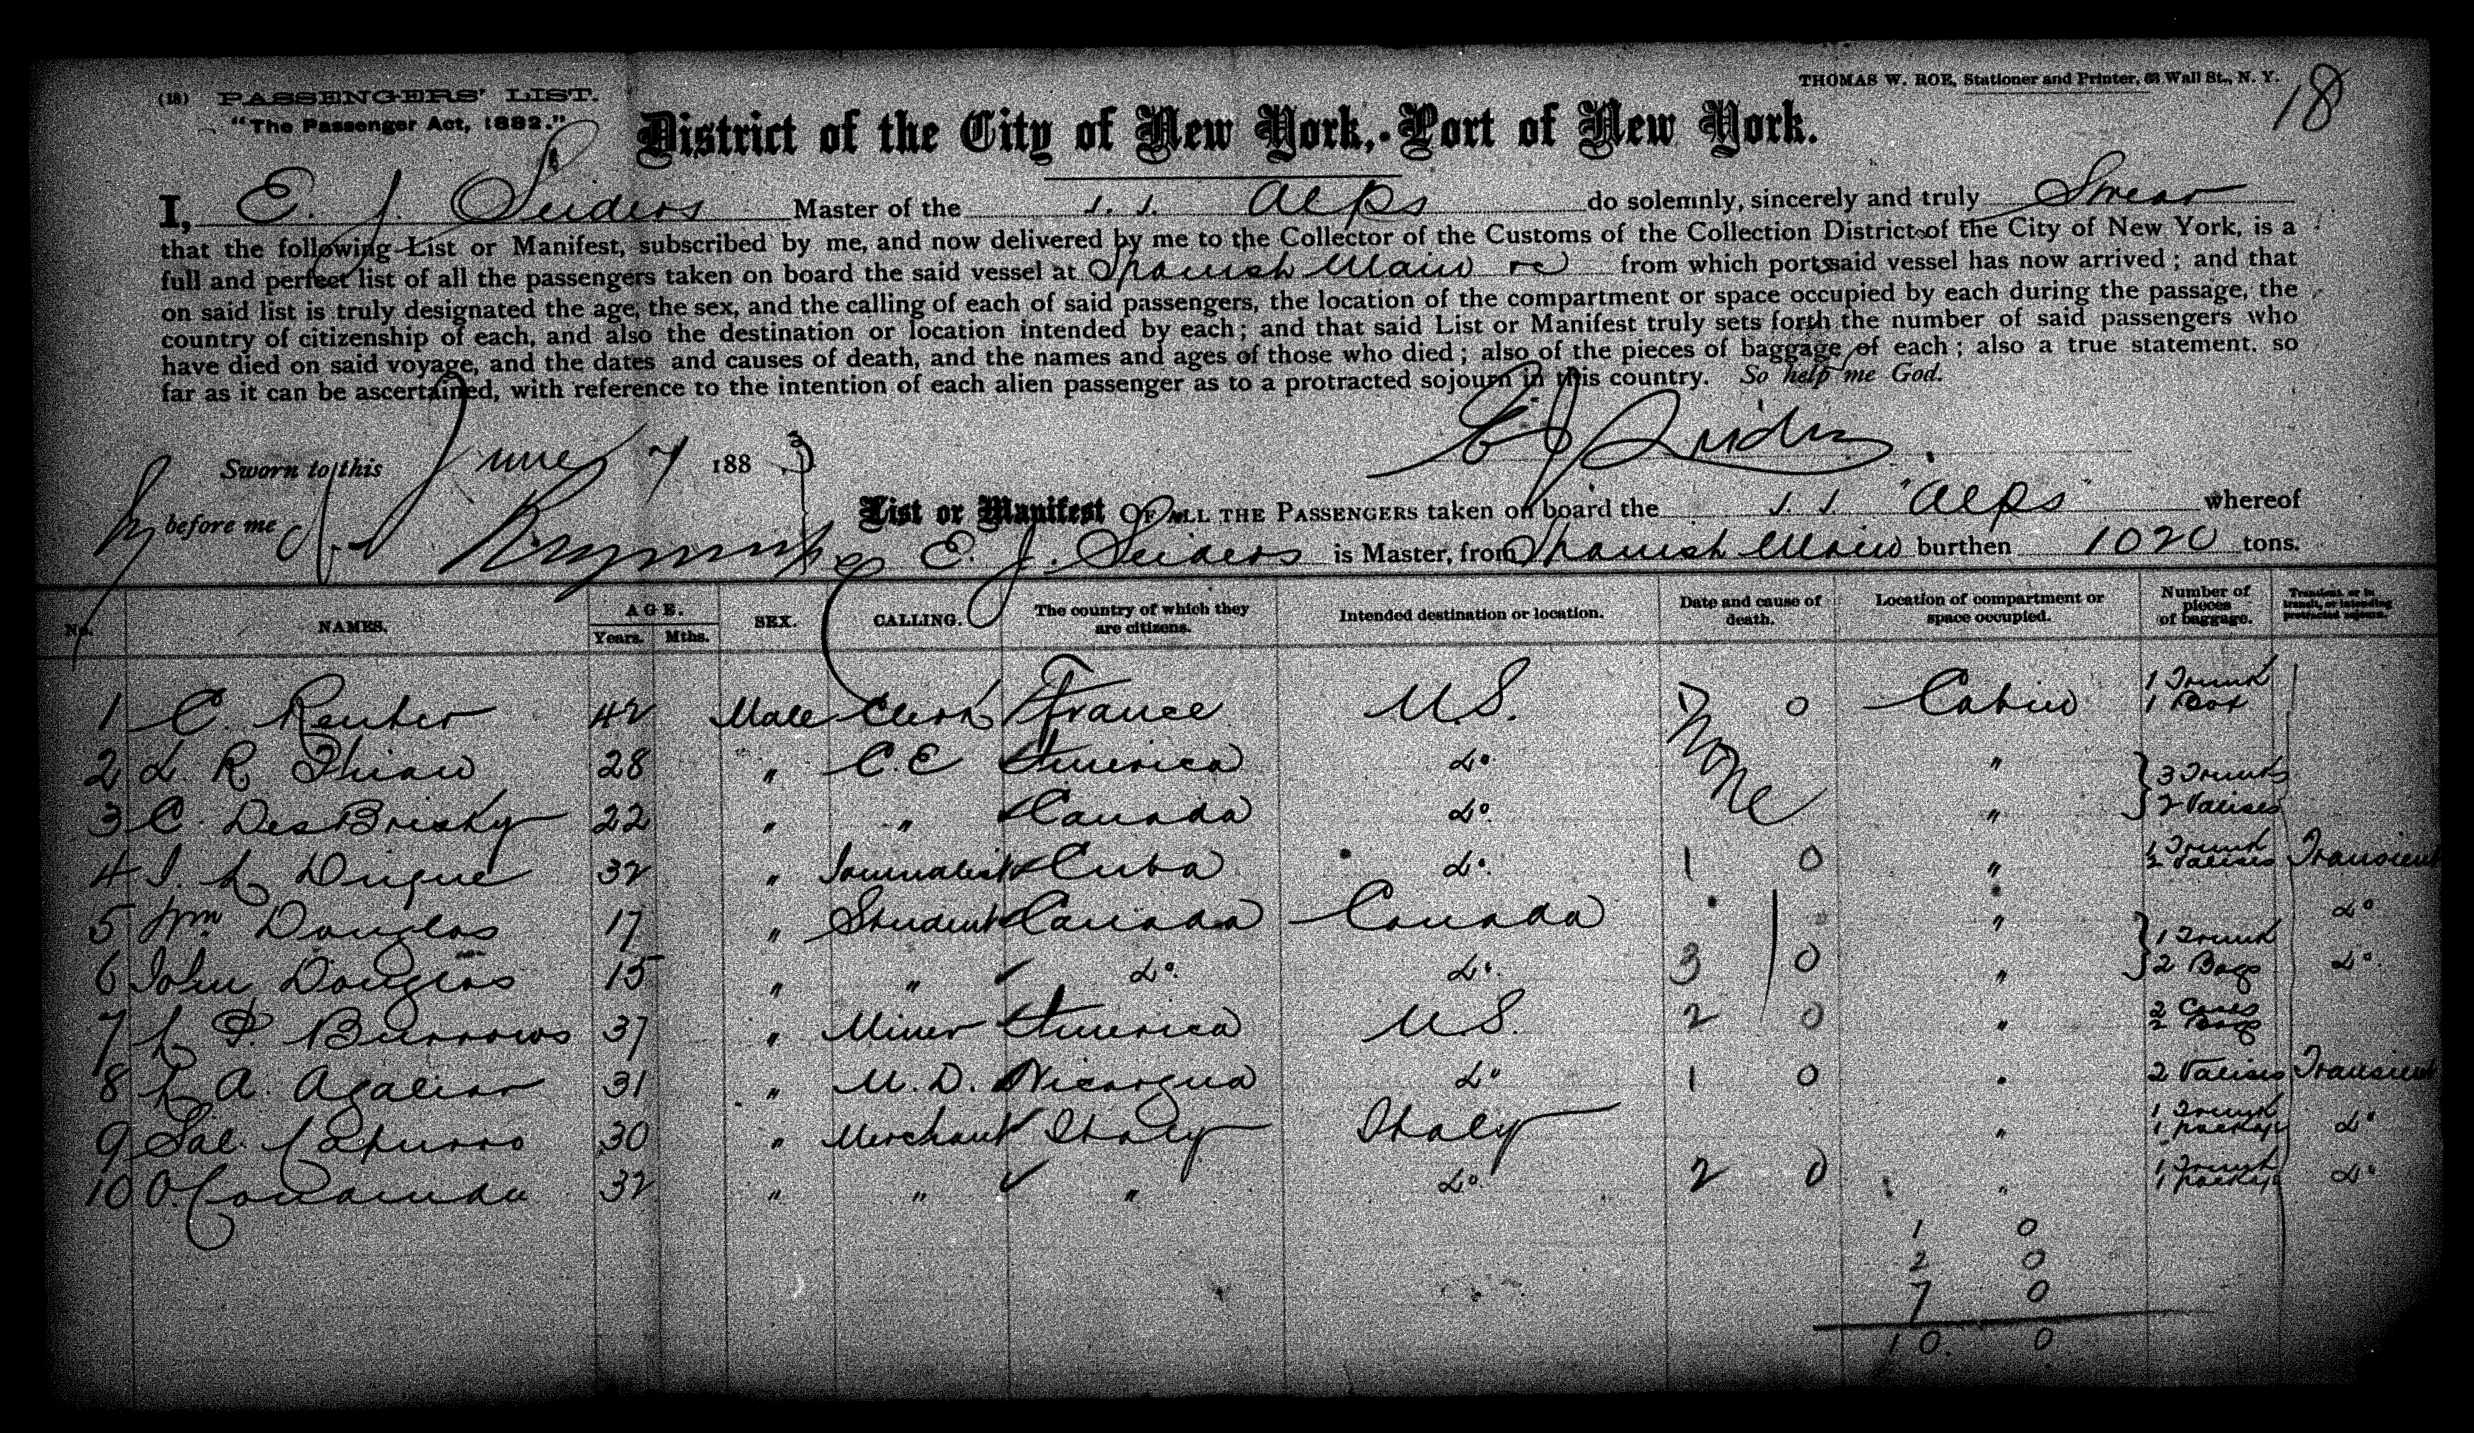 (18) PASSENGERS' LIST.
"The Passenger Act, 1882."
THOMAS W. ROE, Stationer and Printer, Wall St., N. Y.
18
District of the City of New York,--Port of New York.
I, E. J. Seiders Master of the s. s. Alps do solemnly, sincerely and truly Swear
that the following List or Manifest, subscribed by me, and now delivered by me to the Collector of the Customs of the Collection District of the City of New York, is a
full and perfect list of all the passengers taken on board the said vessel at Spanish Main from which ports said vessel has now arrived; and that
on said list is truly designated the age, the sex, and the calling of each of said passengers, the location of the compartment or space occupied by each during the passage, the
country of citizenship of each, and also the destination or location intended by each; and that said List or Manifest truly sets forth the number of said passengers who
have died on said voyage, and the dates and causes of death, and the names and ages of those who died; also of the pieces of baggage of each; also a true statement, so
far as it can be ascertained, with reference to the intention of each alien passenger as to a protracted sojourn in this country. So help me God.
E J Seiders
Sworn to this June 7 1883
before me
List or Manifest OF ALL THE PASSENGERS taken on board the s. s. "Alps" whereof
E. J. Seiders is Master, from Spanish Main burthen 1020 tons.
No. NAMES. AGE. Years. Mths. SEX. CALLING. The country of which they are citizens. Intended destination or location. Date and cause of death. Location of compartment or space occupied. Number of pieces of baggage. Transient, or in transit, or intending protracted sojourn.
1 C. Reuter 42 Male Clerk France U.S. None 0 Cabin 1 Trunk 1 Box
2 L. R. Thian 28 " C.E America do " 3 Trunks
3 C. DesBrisky 22 " " Canada do " 2 Valises
4 J. L Dugue 32 " Journalist Cuba do 1 0 " 1 Trunk 2 Valises Transient
5 Wm Douglas 17 " Student Canada Canada " do
6 John Douglas 15 " " do do 3 0 " 1 Trunk 2 Bags do
7 L P. Burrows 37 " Miner America U S. 2 0 " 2 Cases 2 Bags
8 L A. 31 " M. D. Nicargua do 1 0 " 2 Valises Transient
9 Sal. Capurro 30 " Merchant Italy Italy " 1 Trunk 1 packge do
10 O. 32 " " " do 2 0 " 1 Trunk 1 packge do
1 0
2 0
7 0
10. 0